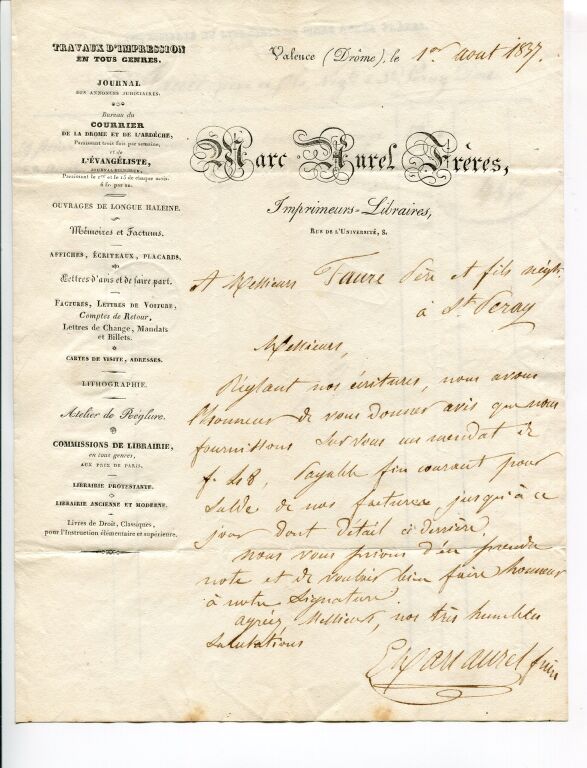 TRAVAUX D'IMPRESSION
EN TOUS GENRES.
JOURNAL
DES ANNONCES JUDICIAIRES.
Bureau du
COURRIER
DE LA DROME ET DE L'ARDÈCHE,
Paraissant trois fois par semaine,
et de
L'ÉVANGÉLISTE,
JOURNAL RELIGIEUX,
Paraissant le 1er et le 15 de chaque mois.
6 fr. par an.
OUVRAGES DE LONGUE HALEINE.
Mémoires et Factums.
AFFICHES, ÉCRITEAUX, PLACARDS.
Lettres d'avis et de faire part.
FACTURES, LETTRES DE VOITURE,
Comptes de Retour,
Lettres de Change, Mandats
et Billets.
CARTES DE VISITE, ADRESSES.
LITHOGRAPHIE.
Atelier de Réglure.
COMMISSIONS DE LIBRAIRIE,
en tous genres,
AUX PRIX DE PARIS.
LIBRAIRIE PROTESTANTE.
LIBRAIRIE ANCIENNE ET MODERNE.
Livres de Droit, Classiques,
pour l'Instruction élémentaire et supérieure.
Valence (Drôme), le 1er aout 1837.
Marc Aurel Frères,
Imprimeurs-Libraires,
RUE DE L'UNIVERSITÉ, 8.
A Messieurs Faure Père et fils négts
à St Peray
Messieurs,
Réglant nos écritures, nous avons
l'honneur de vous donner avis que nous
fournissons sur vous un mandat de
f. 48, payable fin courant pour
solde de nos factures, jusqu'à ce
jour dont détail ci derrière.
nous vous prions d'en prendre
note et de vouloir bien faire honneur
à notre signature.
agréez, Messieurs, nos très humbles
salutations
Marc aurel frères